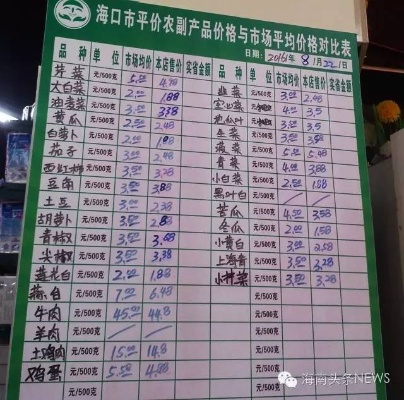 海口市平价农副产品价格与市场平均价格对比表
日期：2016年8月22日
品种 单位 市场均价 本店售价 实省金额 品种 单位 市场均价 本店售价 实省金额
芹菜 元/500克 5.00 4.98 韭菜 元/500克 3.00 2.98
大白菜 元/500克 2.00 1.88 元/500克 4.00 3.5
油麦菜 元/500克 3.50 3.38 地瓜叶 元/500克 3.5
黄瓜 元/500克 2.50 2.48 生菜 元/500克
白萝卜 元/500克 2.00 1.88 菠菜 元/500克 5.50 5.48
茄子 元/500克 3.00 2.48 青菜 元/500克
西红柿 元/500克 3.50 小白菜 元/500克 2.50 1.58
豆角 元/500克 3.88 黑叶白 元/500克
土豆 元/500克 3.50 苦瓜 元/500克 4.00 3.58
胡萝卜 元/500克 3.50 2.88 冬瓜 元/500克 2.00 1.58
青椒 元/500克 3.50 小黄白 元/500克 3.00 2.58
尖椒 元/500克 3.50 3.38 上海青 元/500克 3.50 3.28
莲花白 元/500克 1.88 元/500克 3.50 3.28
蒜白 元/500克 7.00 6.48 元/500克
牛肉 元/500克 45.00 44.8 元/500克
羊肉 元/500克 元/500克
土鸡肉 元/500克 15.00 14.8 元/500克
鸡蛋 元/500克 5.50 4.98 元/500克
元/500克 元/500克
海南头条NEWS